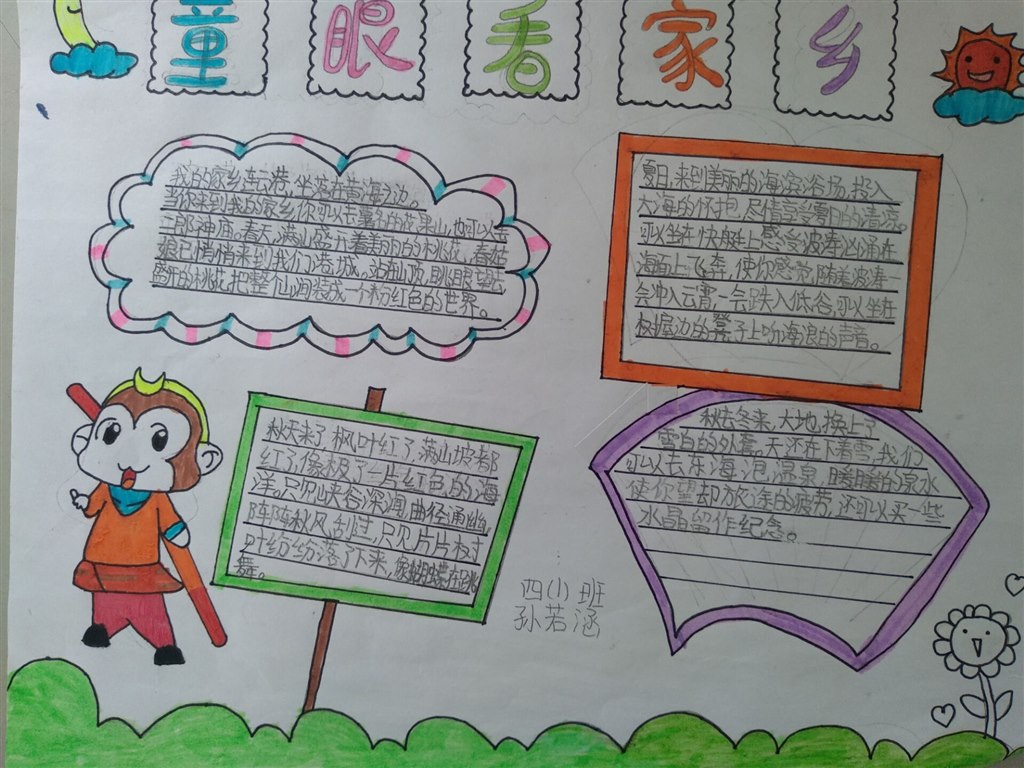 童眼看家乡
我的家乡连云港,坐落在黄海之边。
当你来到我的家乡你可以去著名的花果山,也可以去
二郎神庙。春天,满山盛开着美丽的桃花,春姑
娘已悄悄来到我们港城,站在山顶,眺眼望去
盛开的桃花,把整个山涧装成一个粉红色的世界。
夏日,来到美丽的海滨浴场,投入
大海的怀抱,尽情享受夏日的清凉。
可以坐在快艇上感受波涛汹涌在
海面上飞奔,使你感觉随着波涛一
会冲入云霄一会跌入低谷,可以坐在
栏边的凳子上吩海浪的声音。
秋天来了,枫叶红了,满山坡都
红了,像极了一片红色的海
洋。只见峡谷深涧,曲径通幽,
阵阵秋风刮过,只见片片树
叶纷纷落了下来,像蝴蝶在跳
舞。
秋去冬来,大地,换上了
雪白的外套。天还在下着雪,我们
可以去东海泡温泉,暖暖的泉水
使你望却旅途的疲劳,还可以买一些
水晶留作纪念。
四(1)班
孙若涵